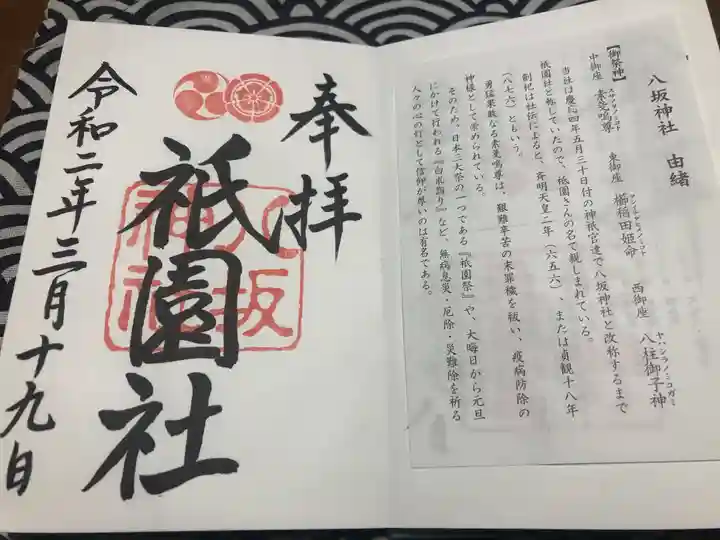 八坂神社 由緒
【御祭神】
中御座 素戔嗚尊 スサノヲノミコト 東御座 櫛稲田姫命 西御座 八柱御子神 ヤハシラノミコガミ
当社は慶応四年五月三十日付の神祇官達で八坂神社と改称するまで
祇園社と称していたので、祇園さんの名で親しまれている。
創祀は社伝によると、斉明天皇二年（六五六）、または貞観十八年
（八七六）ともいう。
勇猛果敢なる素戔嗚尊は、艱難辛苦の末罪穢を祓い、疫病防除の
神様として崇められている。
そのため、日本三大祭の一つである『祇園祭』や、大晦日から元旦
にかけて行われる『白朮詣り』など、無病息災・厄除・災難除を祈る
人々の心の灯として信仰が厚いのは有名である。
奉拝
祇園社
八坂
神社
令和二年三月十九日